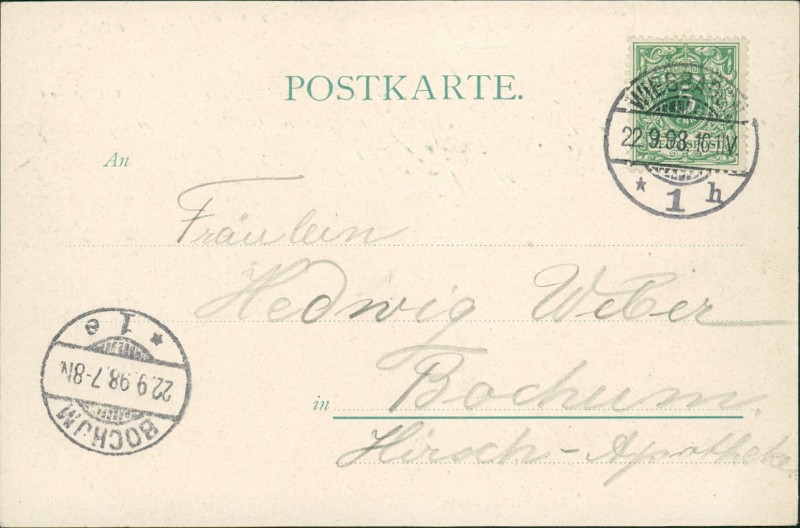 POSTKARTE.
WIESBADEN
22.9.98. 10-11V
* 1 h
An
Fräulein
Hedwig Weber
in Bochum.
Hirsch-Apotheke
* 1 e
22.9.98.7-8N.
BOCHUM